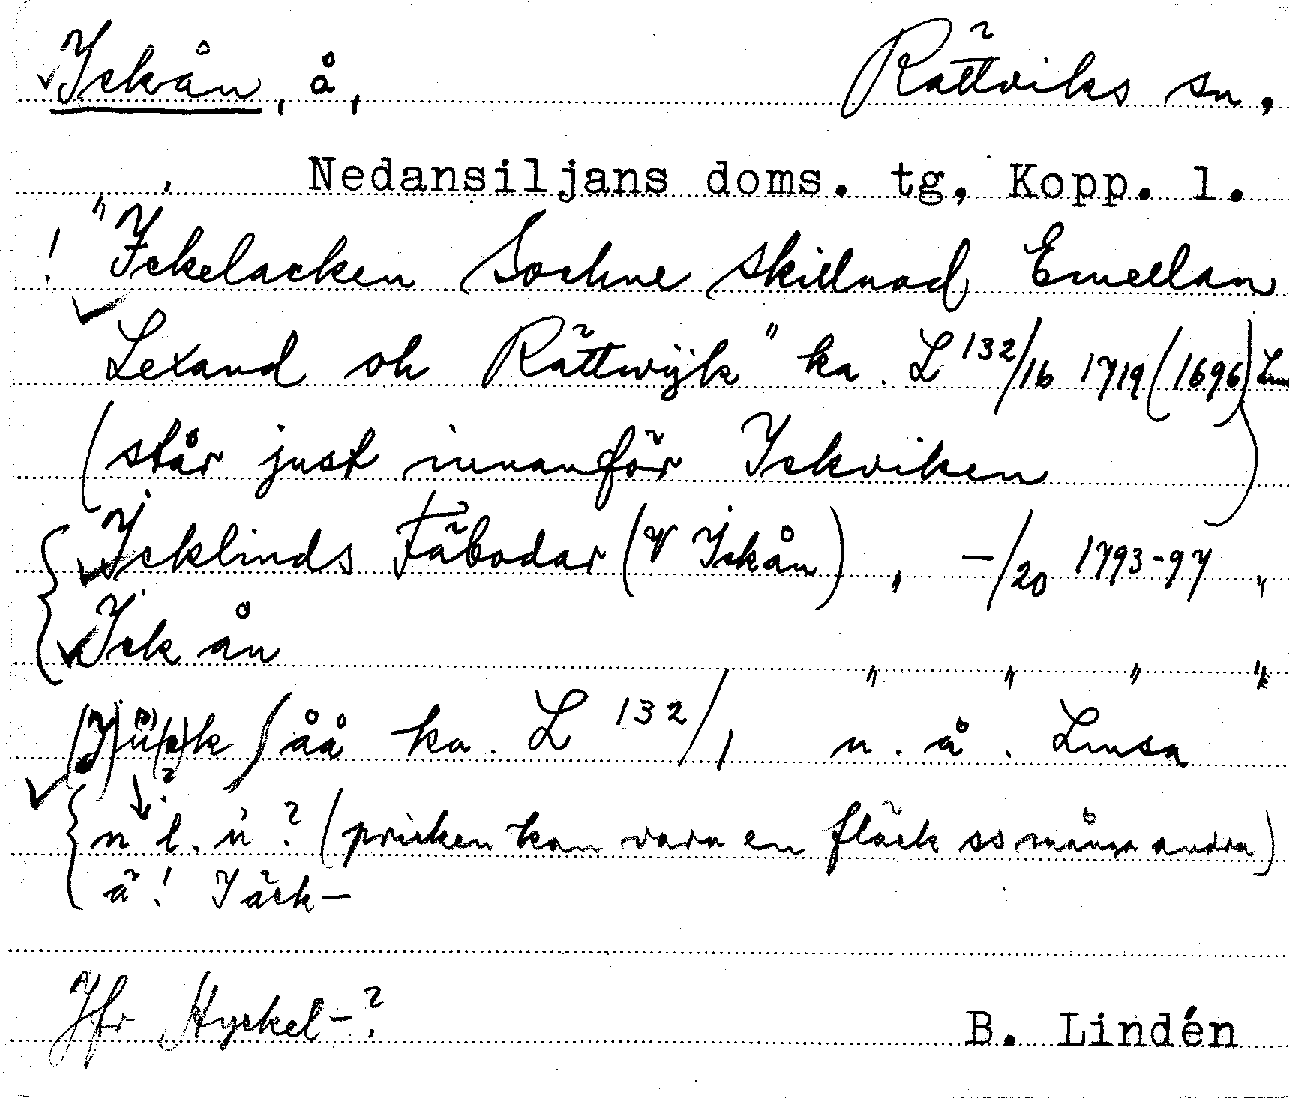 Ickån, å, Rättviks sn,
Nedansiljans doms. tg, Kopp. l.
! "Ickelacken Sockne skillnad Emellan
Lexand ok Rättwijk" ka. L 132/16 1719 (1696) Lm
(står just innanför Ickviken)
Icklinds Fäbodar (V Ickån), -/20 1793-97 "
Ick ån " " " "
åå ka. L 132/1 n. å. Lmsa
n l. u? (pricken kan vara en fläck ss många andra)
ä! Jäck-
Jfr Hyckel-?
B. Lindén